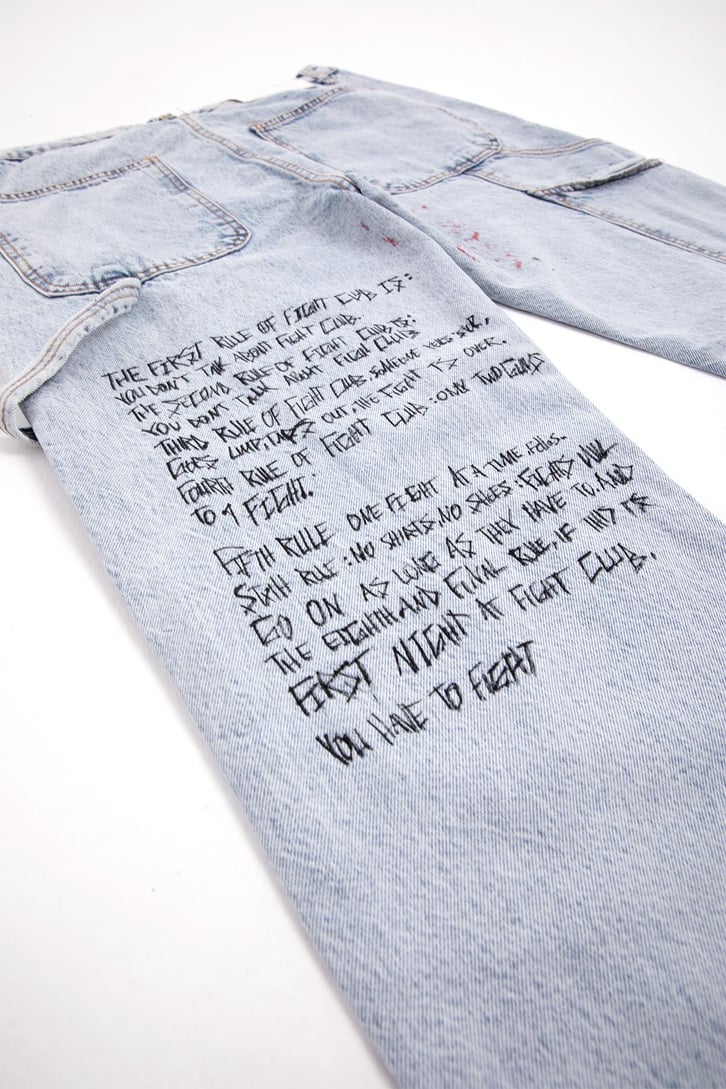 THE FIRST RULE OF FIGHT CLUB IS:
YOU DON'T TALK ABOUT FIGHT CLUB.
THE SECOND RULE OF FIGHT CLUB IS:
YOU DON'T TALK ABOUT FIGH CLUB
THIRD RULE OF FIGHT CLUB: SOMEONE YELLS STOP,
GOES LIMP, TAPS OUT, THE FIGHT IS OVER.
FOURTH RULE OF FIGHT CLUB: ONLY TWO GUYS
TO A FIGHT.
FIFTH RULE ONE FIGHT AT A TIME. FELLAS.
SIXTH RULE: NO SHIRTS, NO SHOES: FIGHTS WILL
GO ON AS LONG AS THEY HAVE TO. AND
THE EIGHTH AND FINAL RULE, IF THIS IS
FIRST NIGHT AT FIGHT CLUB,
YOU HAVE TO FIGHT